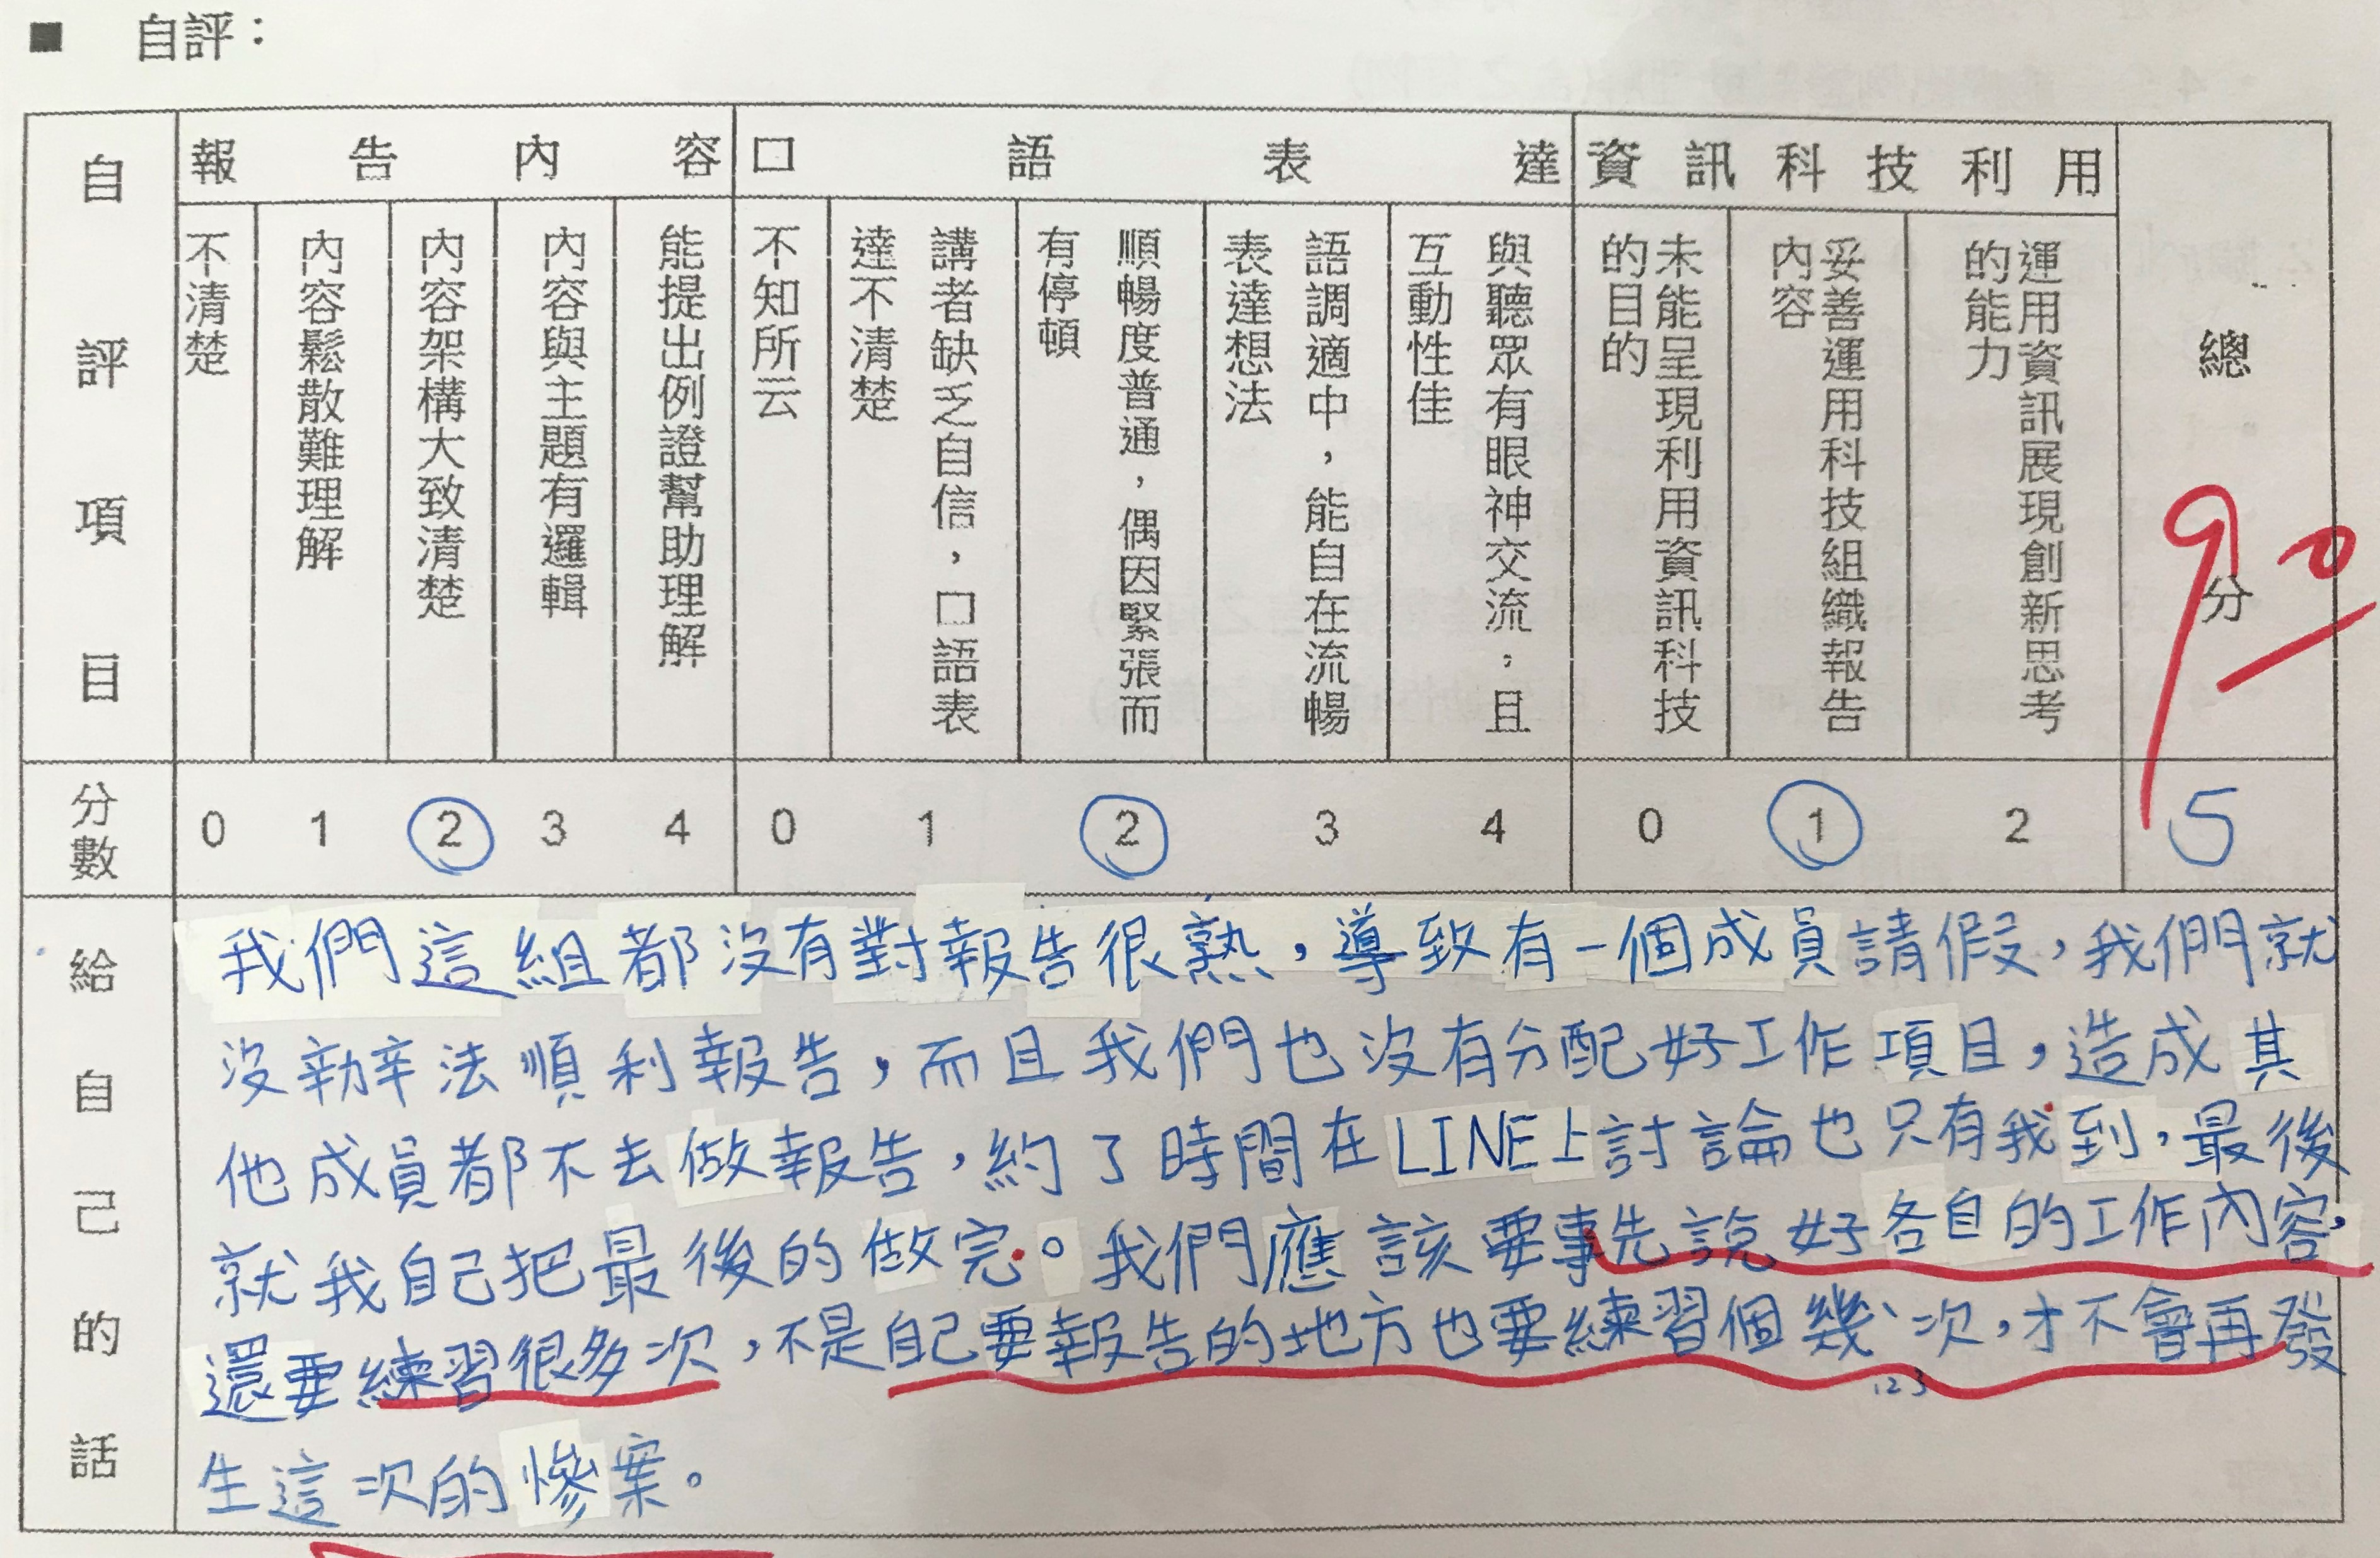 ■ 自評：
自評項目
報告內容
口語表達
資訊科技利用
總分
90
不清楚
內容鬆散難理解
內容架構大致清楚
內容與主題有邏輯
能提出例證幫助理解
不知所云
講者缺乏自信，口語表
達不清楚
順暢度普通，偶因緊張而
有停頓
語調適中，能自在流暢
表達想法
與聽眾有眼神交流，且
互動性佳
未能呈現利用資訊科技
的目的
妥善運用科技組織報告
內容
運用資訊展現創新思考
的能力
分數 0 1 2 3 4 0 1 2 3 4 0 1 2 5
給自己的話
我們這組都沒有對報告很熟，導致有一個成員請假，我們就
沒辦法順利報告，而且我們也沒有分配好工作項目，造成其
他成員都不去做報告，約了時間在LINE上討論也只有我到，最後
就我自己把最後的做完。我們應該要事先說好各自的工作內容，
還要練習很多次，不是自己要報告的地方也要練習個幾次，才不會再發
123
生這次的慘案。